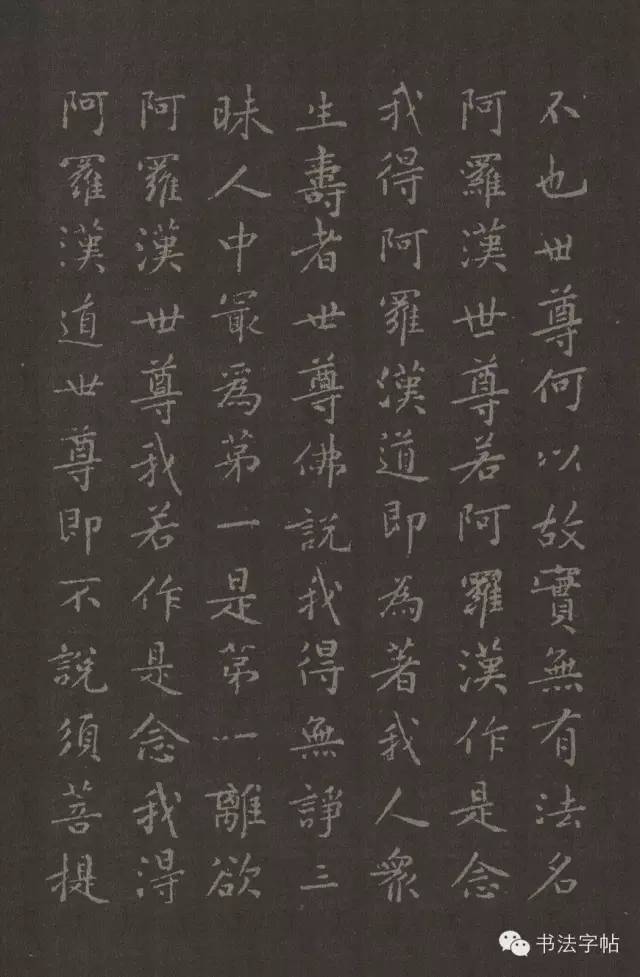 不也世尊何以故實無有法名
阿羅漢世尊若阿羅漢作是念
我得阿羅漢道即為著我人衆
生壽者世尊佛説我得無諍三
昧人中最爲苐一是苐一離欲
阿羅漢世尊我若作是念我得
阿羅漢道世尊即不説須菩提
书法字帖